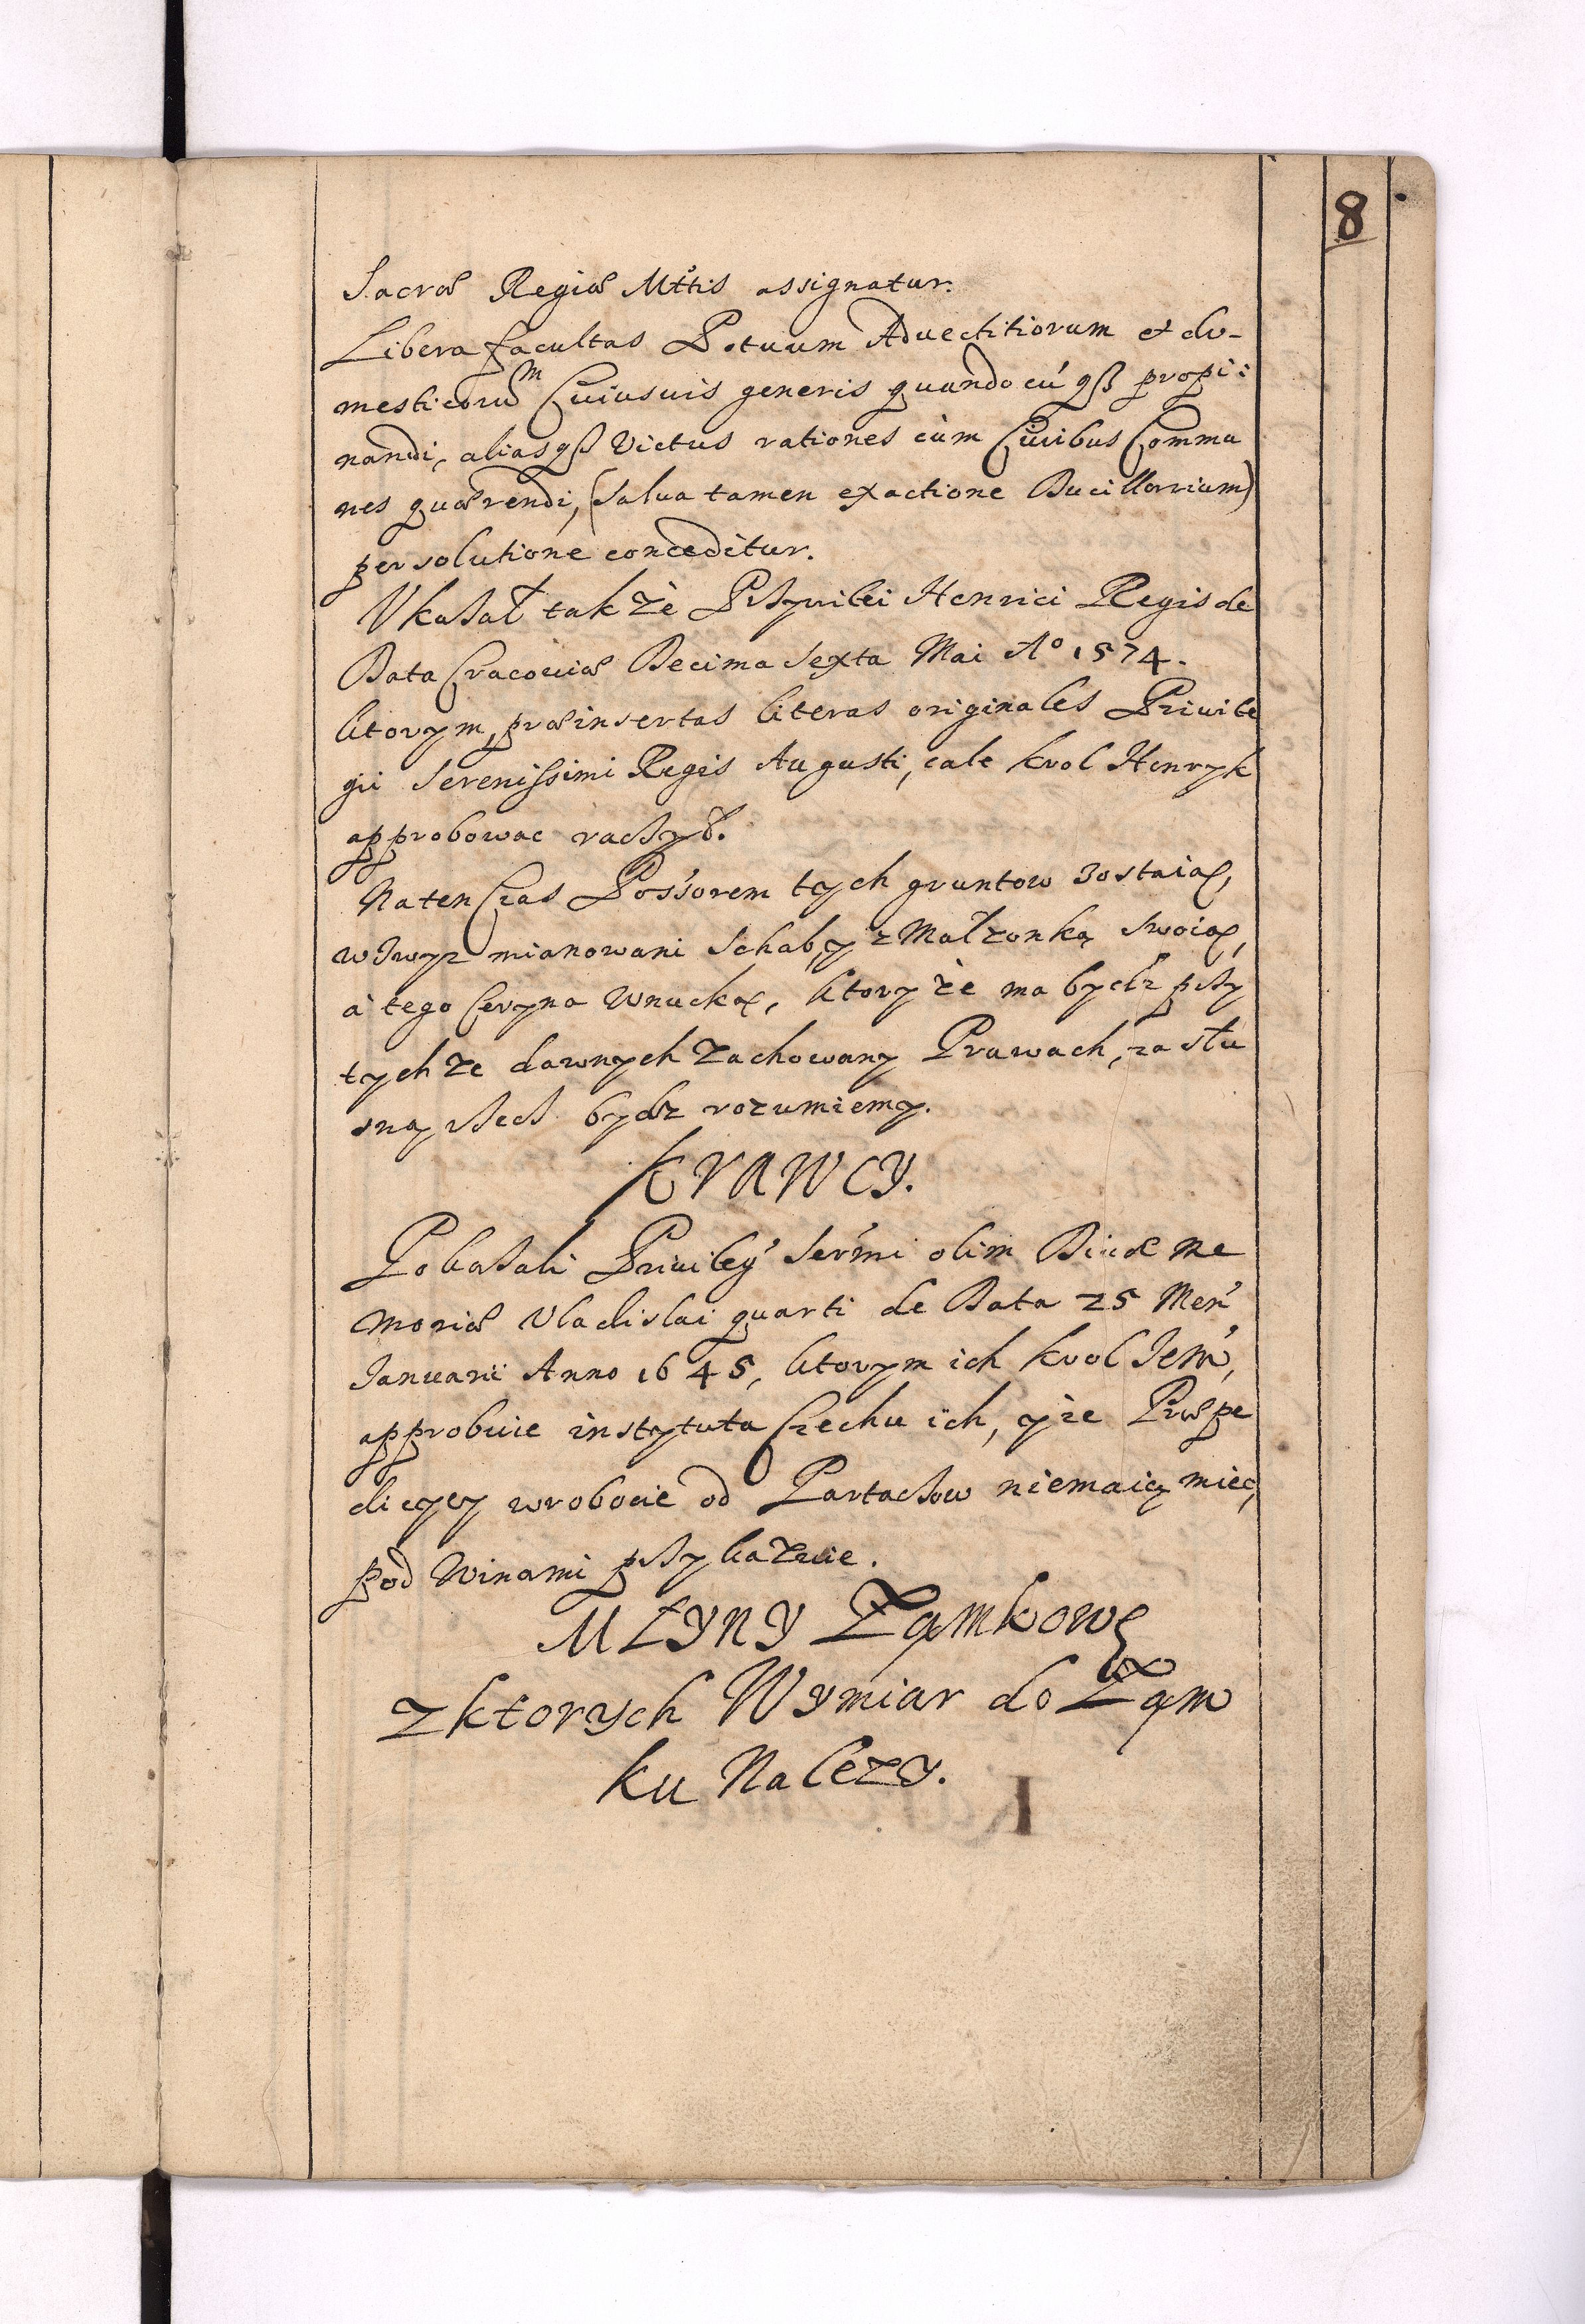 8
Sacræ Regiæ Mttis assignatur.
Libera facultas Potuum Aduectitiorum et do-
mesticorum Cuiusuis generis quandocu´qß propi:
nandi, aliasqß Victus rationes cùm Ciuibus Commu
nes quærendi, (salua tamen exactione Ducillarium)
persolutione conceditur.
Vkazał takze Przyuilei Henrici Regis de
Data Cracouiæ Decima Sexta Mai Ao 1574.
ktorym, præinsertas literas originales Priuile
gii Serenissimi Regis Augusti, cale krol Henryk
approbowac raczył.
Naten Czas Poss´orem tych gruntow zostaią,
wzwyz mianowani Schaby z Małzonką swoią,
à tego syna Wnucką, ktory ze ma bydz przy
tychze dawnych zachowany Prawach, za słu
szną rzecz bydz rozumiemy.
KRAWCY.
Pokazali Priuiley Ser´mi olim Diuæ me
moriæ Vladislai quarti de Data 25 Men´
Ianuarii Anno 1645, ktorym ich krol Jem´,
approbuie instytuta Czechu ich, yze Præpe
dicyey wrobocie od Partaczow niemaią miec,
pod Winami przykazuie.
MŁYNY Zamkowe
z ktorych Wymiar do Zam
ku Nalezy.